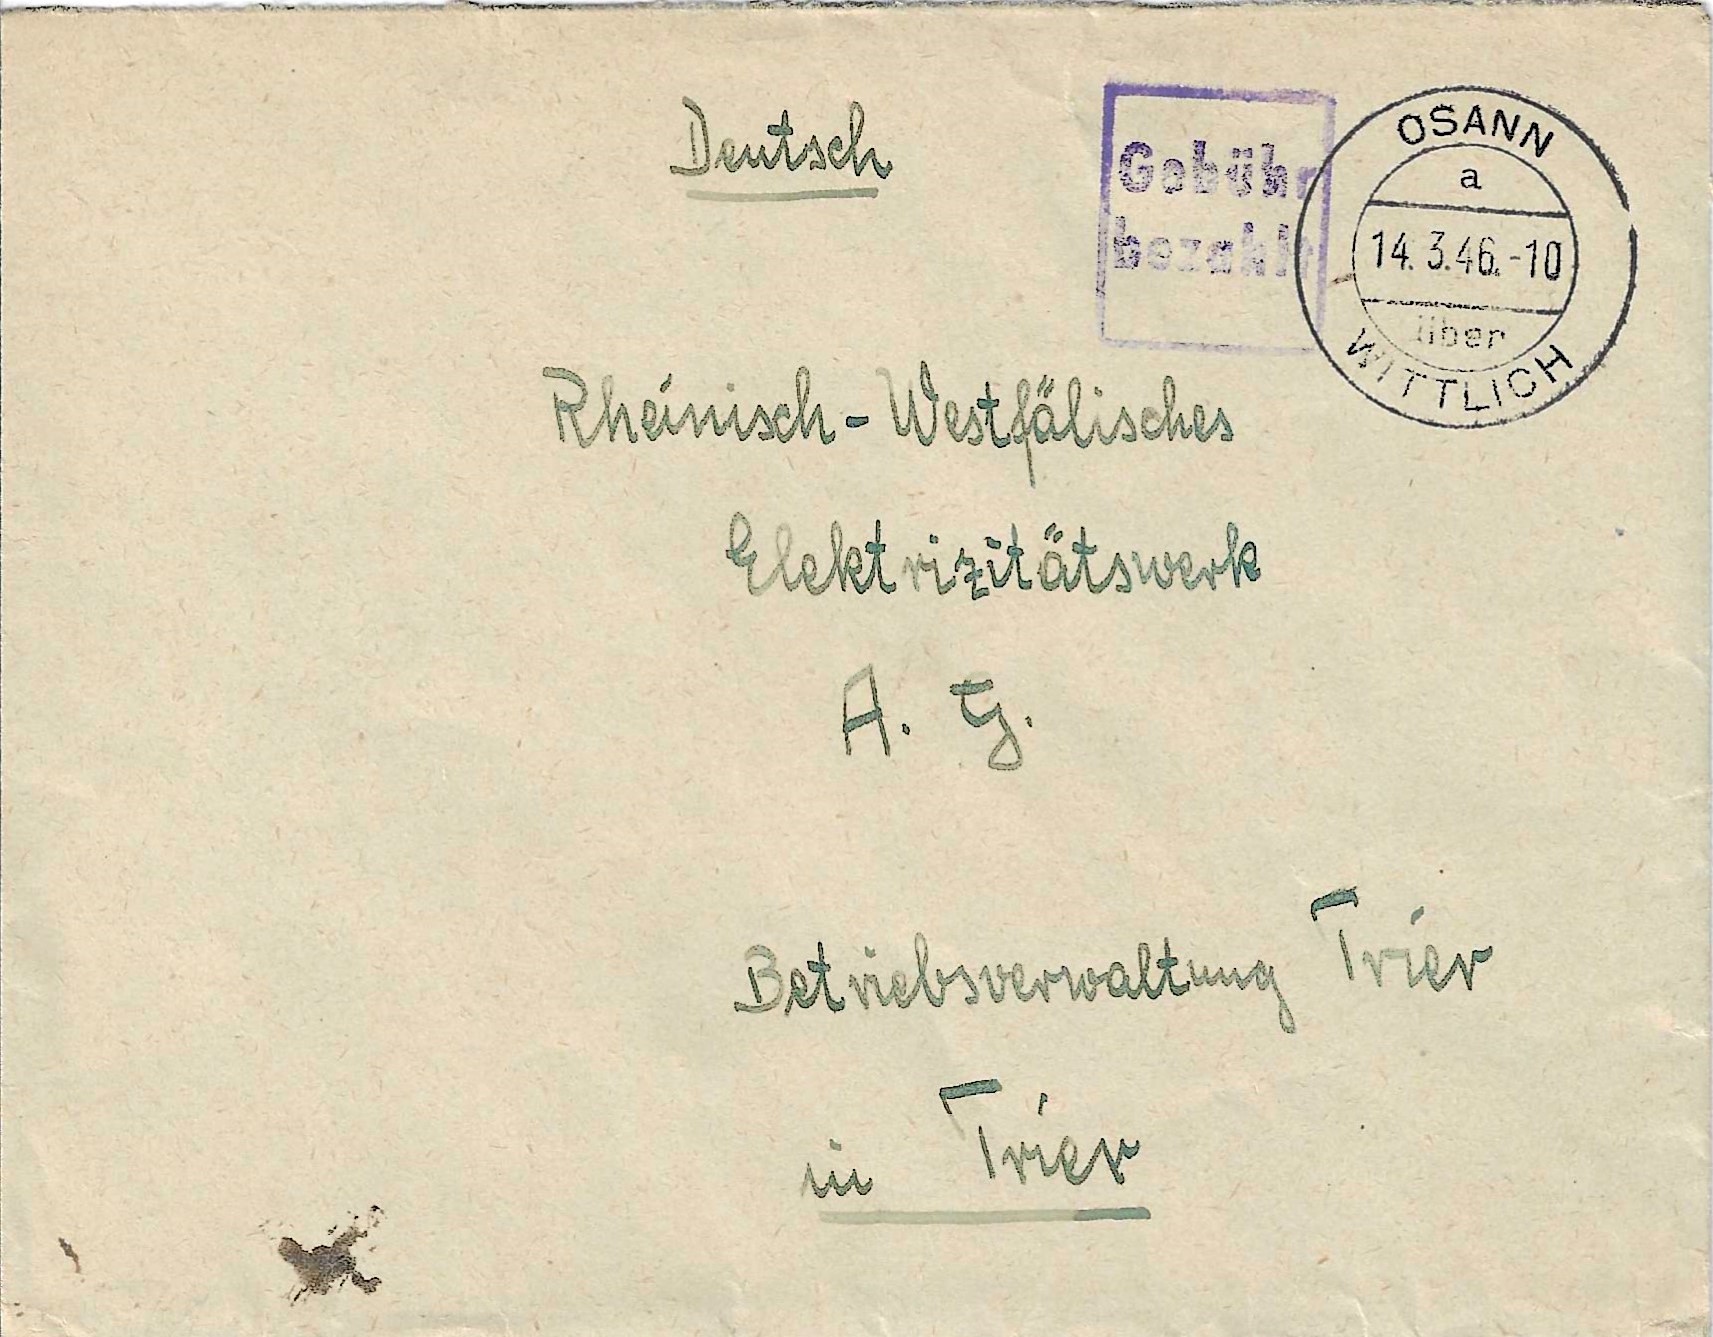 Deutsch
Gebühr
bezahlt
OSANN
a
14.3.46.-10
über
WITTLICH
Rheinisch-Westfälisches
Elektrizitätswerk
A. G.
Betriebsverwaltung Trier
in Trier